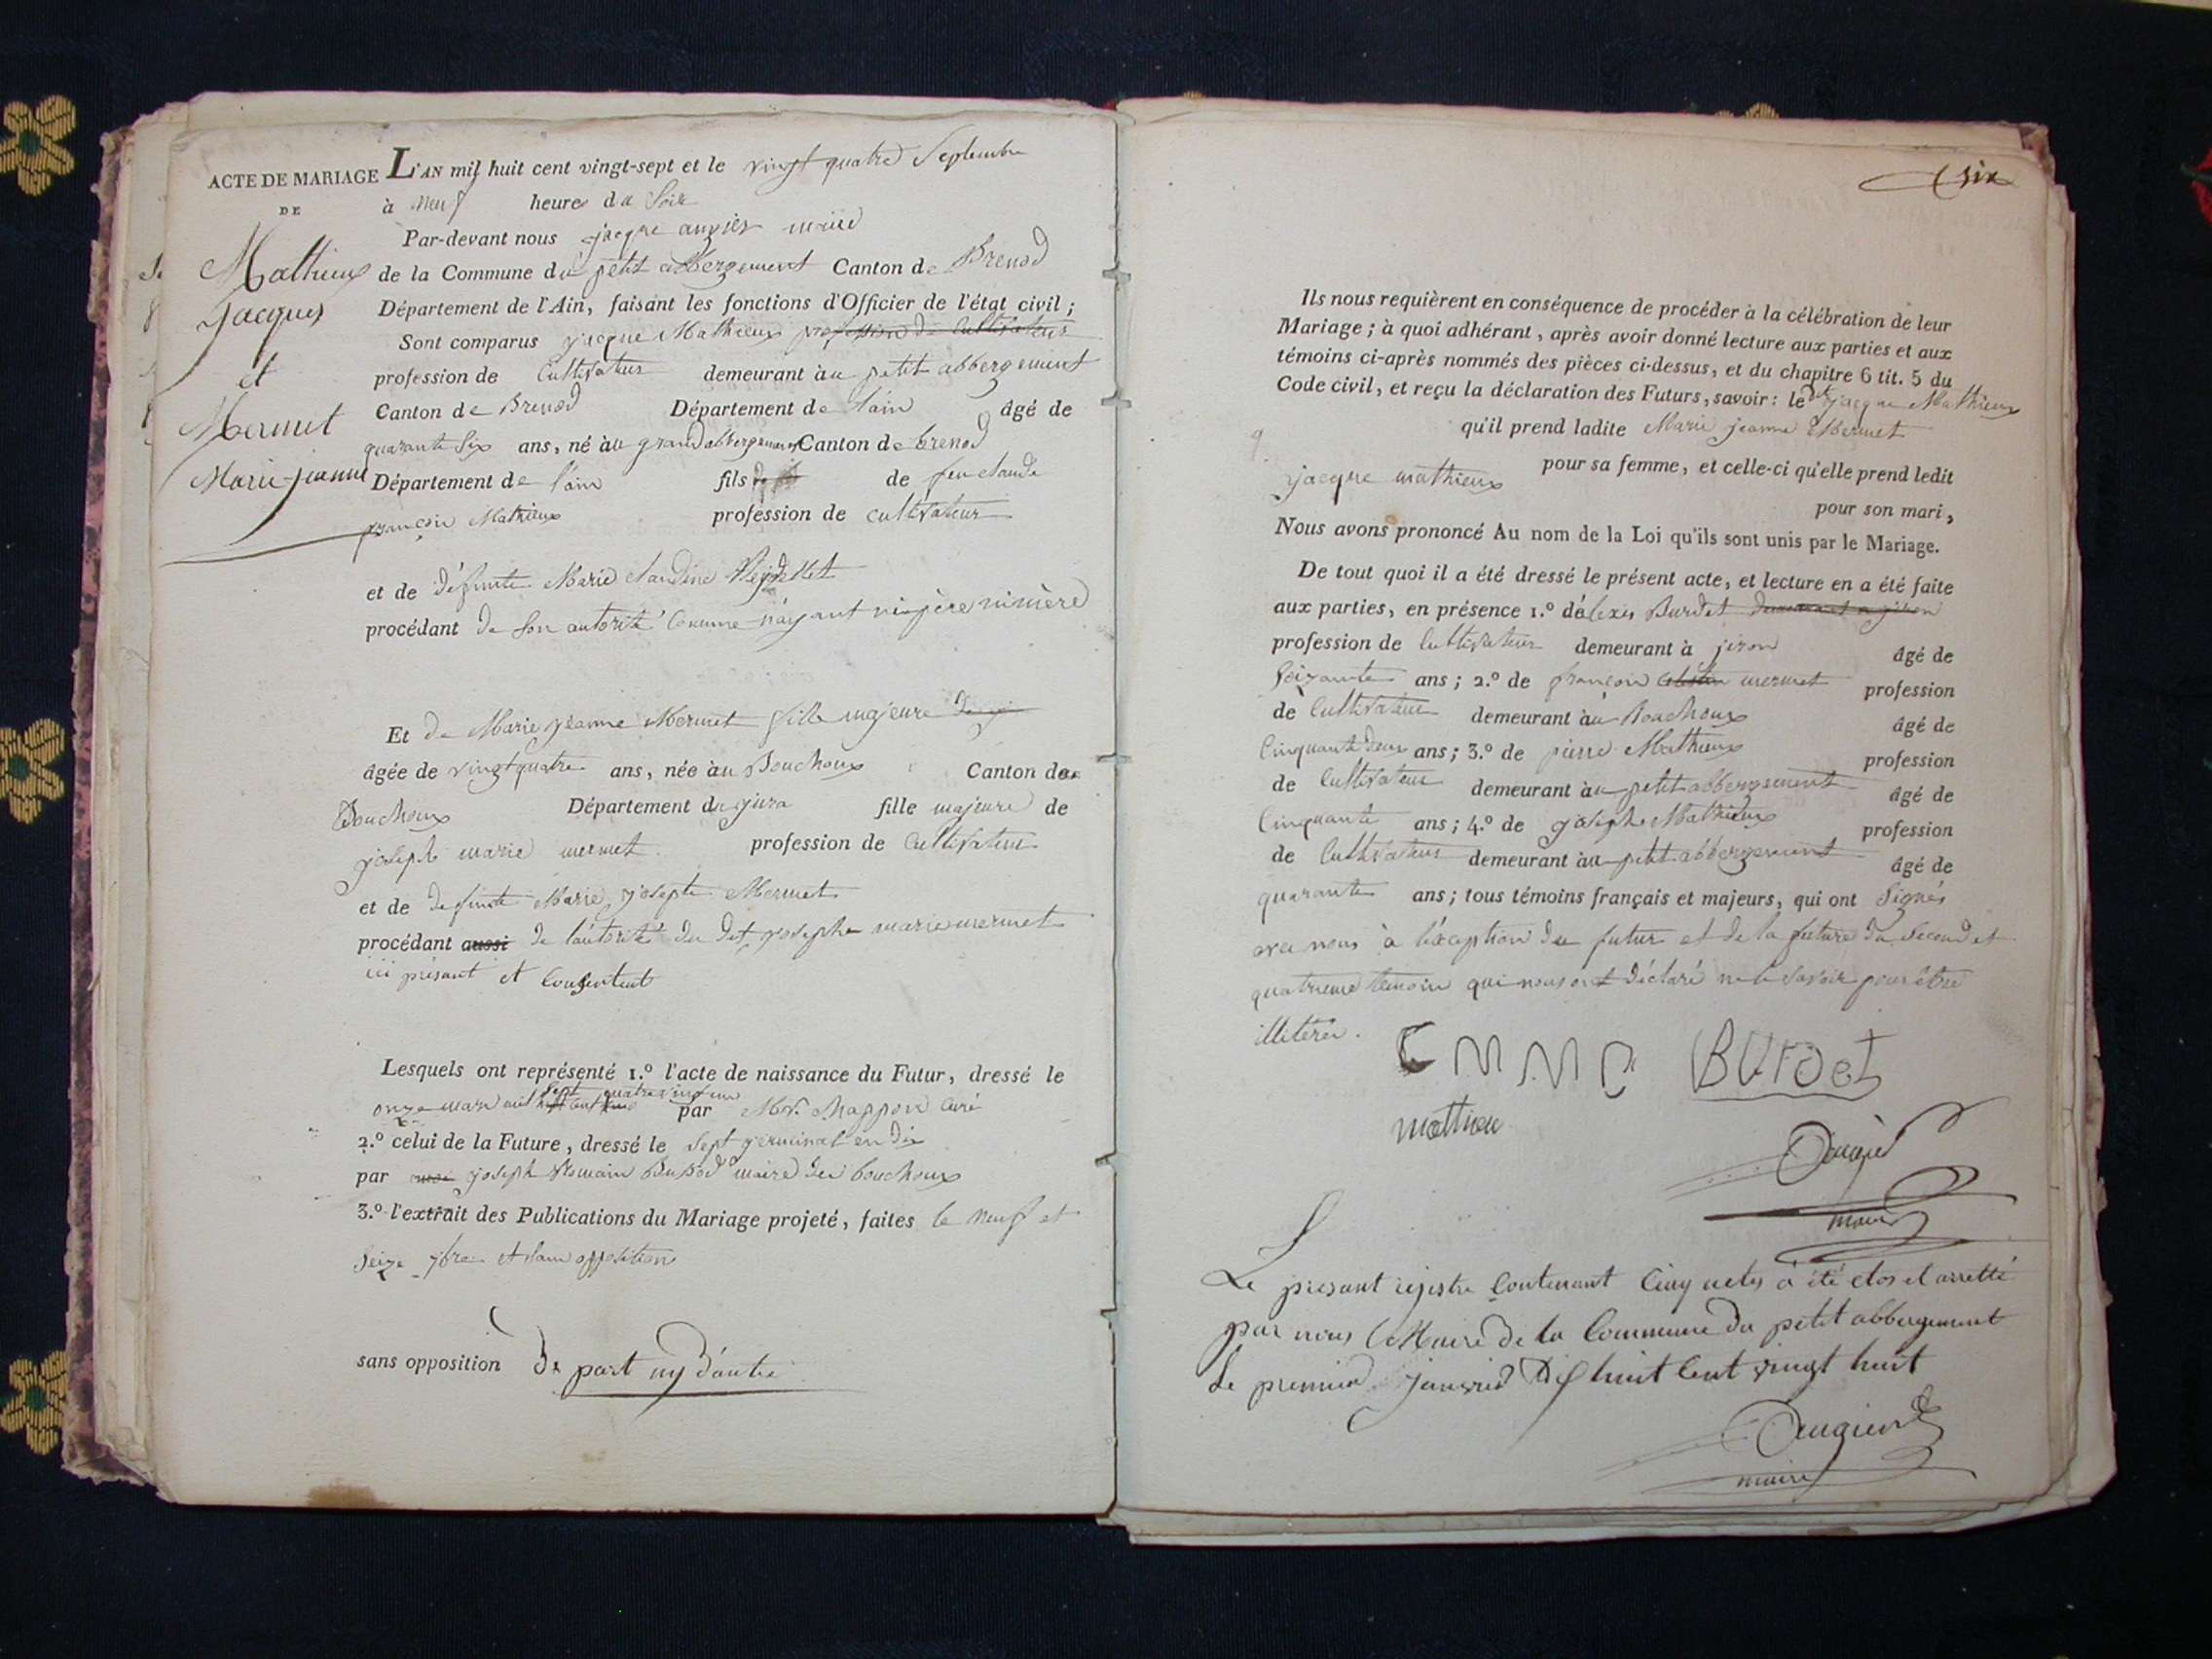 ACTE DE MARIAGE
DE
Mathieux
Jacques
et
Mermet
Marie-jeanne
L'AN mil huit cent vingt-sept et le vingt quatre Septembre
à neuf heures du Soir
Par-devant nous jacque augier maire
de la Commune du petit abbergement Canton de Brenod
Département de l'Ain, faisant les fonctions d'Officier de l'état civil ;
Sont comparus jacque Mathieux profession de Cultivateur
profession de Cultivateur demeurant au petit abbergement
Canton de Brenod Département de l'ain âgé de
quarante Six ans, né au grand abbergement Canton de brenod
Département de l'ain fils de feu claude
françois Mathieux profession de cultivateur
et de défunte Marie claudine
procédant de Son autorité Comme n'ayant ni père ni mère
Et de Marie jeanne Mermet fille majeure
âgée de vingt quatre ans, née au Bouchoux Canton des
Bouchoux Département du jura fille majeure de
joseph marie mermet profession de Cultivateur
et de defunte Marie josepte Mermet
procédant aussi de l'autorité du dit josephe marie mermet
ici présant et Consentent
Lesquels ont représenté 1.º l'acte de naissance du Futur, dressé le
onze mars mil Sept cent quatre vingt un par Mr. Chappon Curé
2.º celui de la Future, dressé le Sept germinal en dix
par joseph Romain maire des bouchoux
3.º l'extrait des Publications du Mariage projeté, faites le neuf et
Seize 7bre et sans opposition
sans opposition de part ny d'autre
six
Ils nous requièrent en conséquence de procéder à la célébration de leur
Mariage ; à quoi adhérant, après avoir donné lecture aux parties et aux
témoins ci-après nommés des pièces ci-dessus, et du chapitre 6 tit. 5 du
Code civil, et reçu la déclaration des Futurs, savoir : le dt jacque Mathieux
qu'il prend ladite Marie jeanne Mermet
pour sa femme, et celle-ci qu'elle prend ledit
jacque mathieux
pour son mari,
Nous avons prononcé Au nom de la Loi qu'ils sont unis par le Mariage.
De tout quoi il a été dressé le présent acte, et lecture en a été faite
aux parties, en présence 1.º d'alexis Burdet demeurant a jiron
profession de Cultivateur demeurant à jiron âgé de
Soixante ans ; 2.º de françois mermet profession
de Cultivateur demeurant au Bouchoux âgé de
Cinquante deux ans ; 3.º de pierre Mathieux profession
de Cultivateur demeurant au petit abbergement âgé de
Cinquante ans ; 4.º de joseph Mathieux profession
de Cultivateur demeurant au petit abbergement âgé de
quarante ans ; tous témoins français et majeurs, qui ont Signés
avec nous à l'éxception du futur et de la future du Second et
quatrieme temoin qui nous ont déclaré ne le Savoir pour être
illitérés.
BUrdet
mathieu
augier
maire
Le présant rejistre Contenant Cinq actes a été clos et arretté
par nous Maire de la Commune du petit abbergement
Le premier janvier Mil huit Cent vingt huit
augier
maire